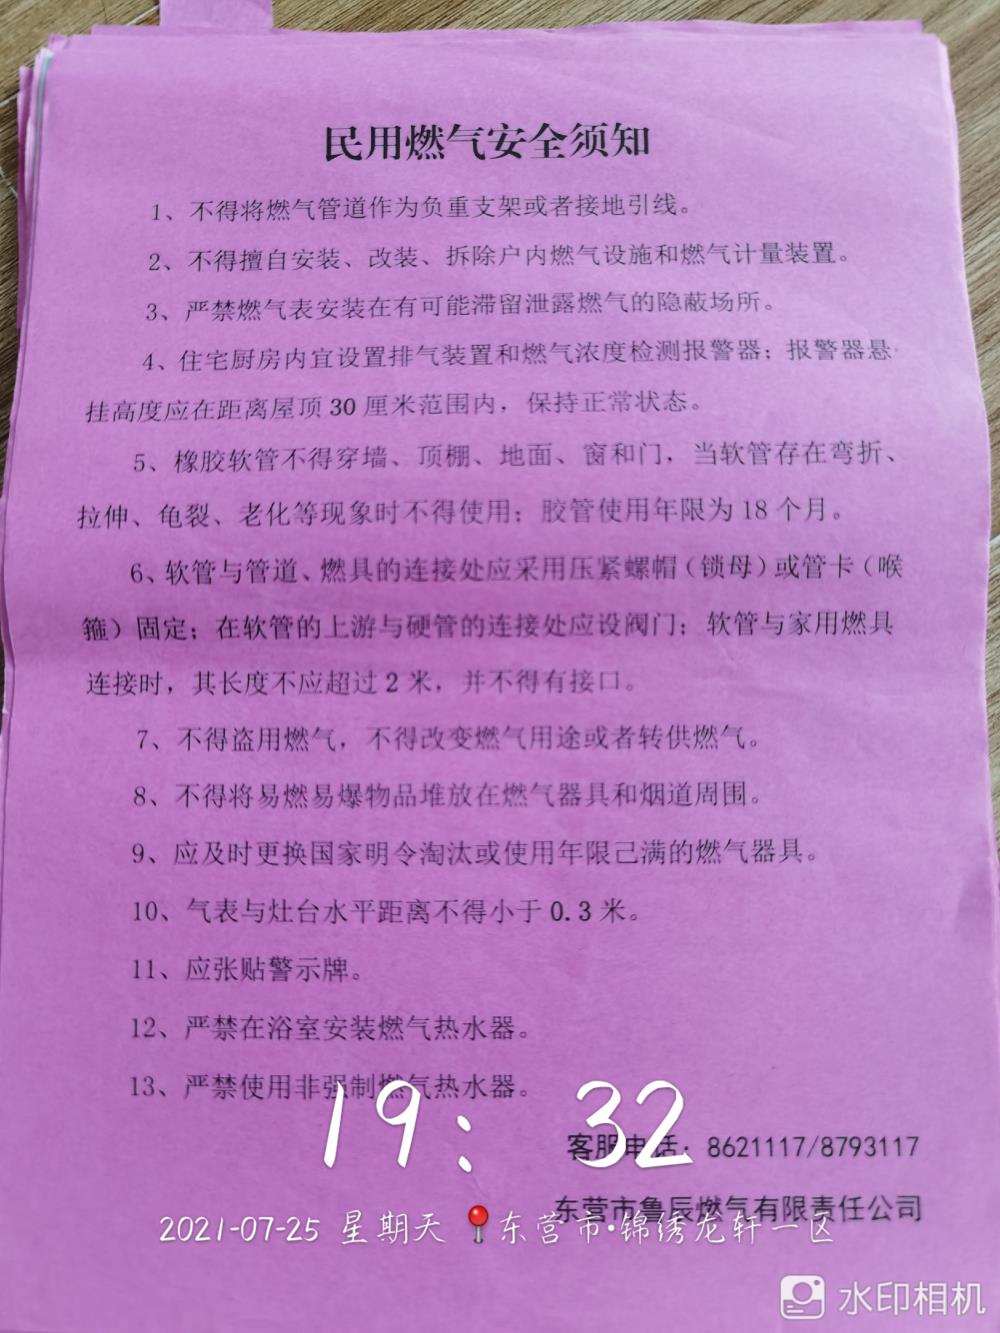 民用燃气安全须知
1、不得将燃气管道作为负重支架或者接地引线。
2、不得擅自安装、改装、拆除户内燃气设施和燃气计量装置。
3、严禁燃气表安装在有可能滞留泄露燃气的隐蔽场所。
4、住宅厨房内宜设置排气装置和燃气浓度检测报警器；报警器悬
挂高度应在距离屋顶30厘米范围内，保持正常状态。
5、橡胶软管不得穿墙、顶棚、地面、窗和门，当软管存在弯折、
拉伸、龟裂、老化等现象时不得使用；胶管使用年限为18个月。
6、软管与管道、燃具的连接处应采用压紧螺帽（锁母）或管卡（喉
箍）固定；在软管的上游与硬管的连接处应设阀门；软管与家用燃具
连接时，其长度不应超过2米，并不得有接口。
7、不得盗用燃气，不得改变燃气用途或者转供燃气。
8、不得将易燃易爆物品堆放在燃气器具和烟道周围。
9、应及时更换国家明令淘汰或使用年限已满的燃气器具。
10、气表与灶台水平距离不得小于0.3米。
11、应张贴警示牌。
12、严禁在浴室安装燃气热水器。
13、严禁使用非强制燃气热水器。
19:32
客服电话：8621117/8793117
东营市鲁辰燃气有限责任公司
2021-07-25 星期天 东营市·锦绣龙轩一区
水印相机